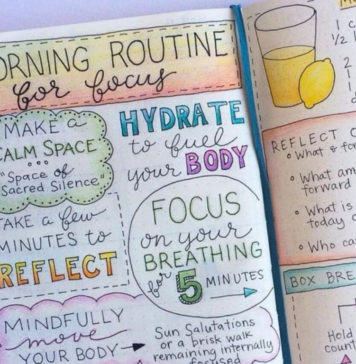 ORNING ROUTINE
for focus
MAKE a
CALM SPACE
"Space of
Sacred Silence"
HYDRATE
to fuel
your BODY
TAKE a few
MINUTES to
REFLECT
FOCUS
on your
BREATHING
for 5 MINUTES
MINDFULLY
move
YOUR BODY
Sun Salutations
or a brisk walk
remaining internally
focused
1
1/2
2
REFLECT
• What
• What am
forward
• What is
today
• Who ca
BOX BRE
Hold
coun